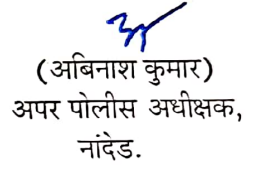 (अबिनाश कुमार)
अपर पोलीस अधीक्षक,
नांदेड.